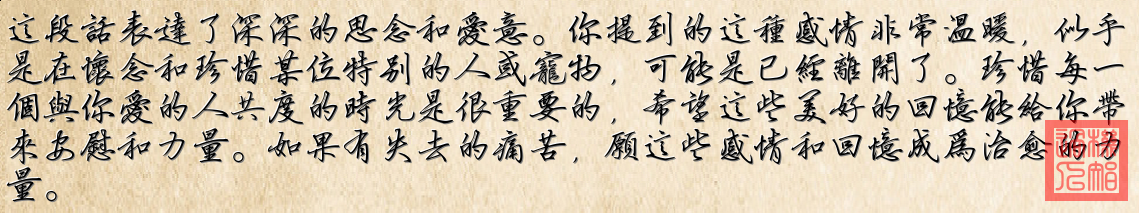 這段話表達了深深的思念和愛意。你提到的這種感情非常溫暖，似乎
是在懷念和珍惜某位特別的人或寵物，可能是已經離開了。珍惜每一
個與你愛的人共度的時光是很重要的，希望這些美好的回憶能給你帶
來安慰和力量。如果有失去的痛苦，願這些感情和回憶成為治愈的力
量。